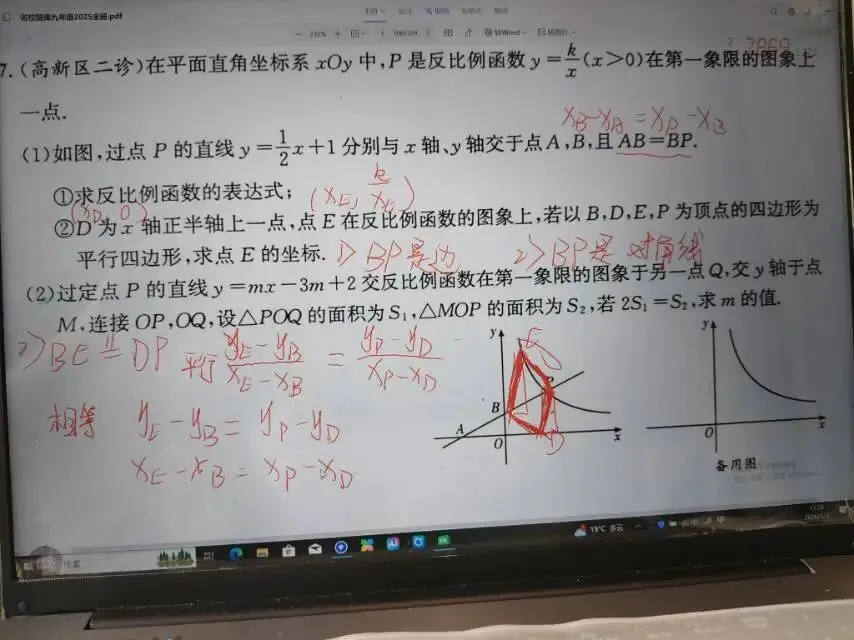 名校题库九年级2025全册.pdf
7.(高新区二诊)在平面直角坐标系 xOy 中,P 是反比例函数 y=k/x(x>0)在第一象限的图象上
一点.
x_B-x_A=x_P-x_B
(1)如图,过点 P 的直线 y=1/2x+1 分别与 x 轴、y 轴交于点 A,B,且 AB=BP.
①求反比例函数的表达式;
(x_E, k/x_E)
(x_D, 0)
②D 为 x 轴正半轴上一点,点 E 在反比例函数的图象上,若以 B,D,E,P 为顶点的四边形为
平行四边形,求点 E 的坐标.
1> BP是边 2> BP是对角线
(2)过定点 P 的直线 y=mx-3m+2 交反比例函数在第一象限的图象于另一点 Q,交 y 轴于点
M,连接 OP,OQ,设△POQ 的面积为 S₁,△MOP 的面积为 S₂,若 2S₁=S₂,求 m 的值.
BE ∥= DP 平行 (y_E-y_B)/(x_E-x_B) = (y_P-y_D)/(x_P-x_D)
相等 y_E-y_B=y_P-y_D
x_E-x_B=x_P-x_D
y E
B
A
O D x
y
O x
备用图
19°C 多云